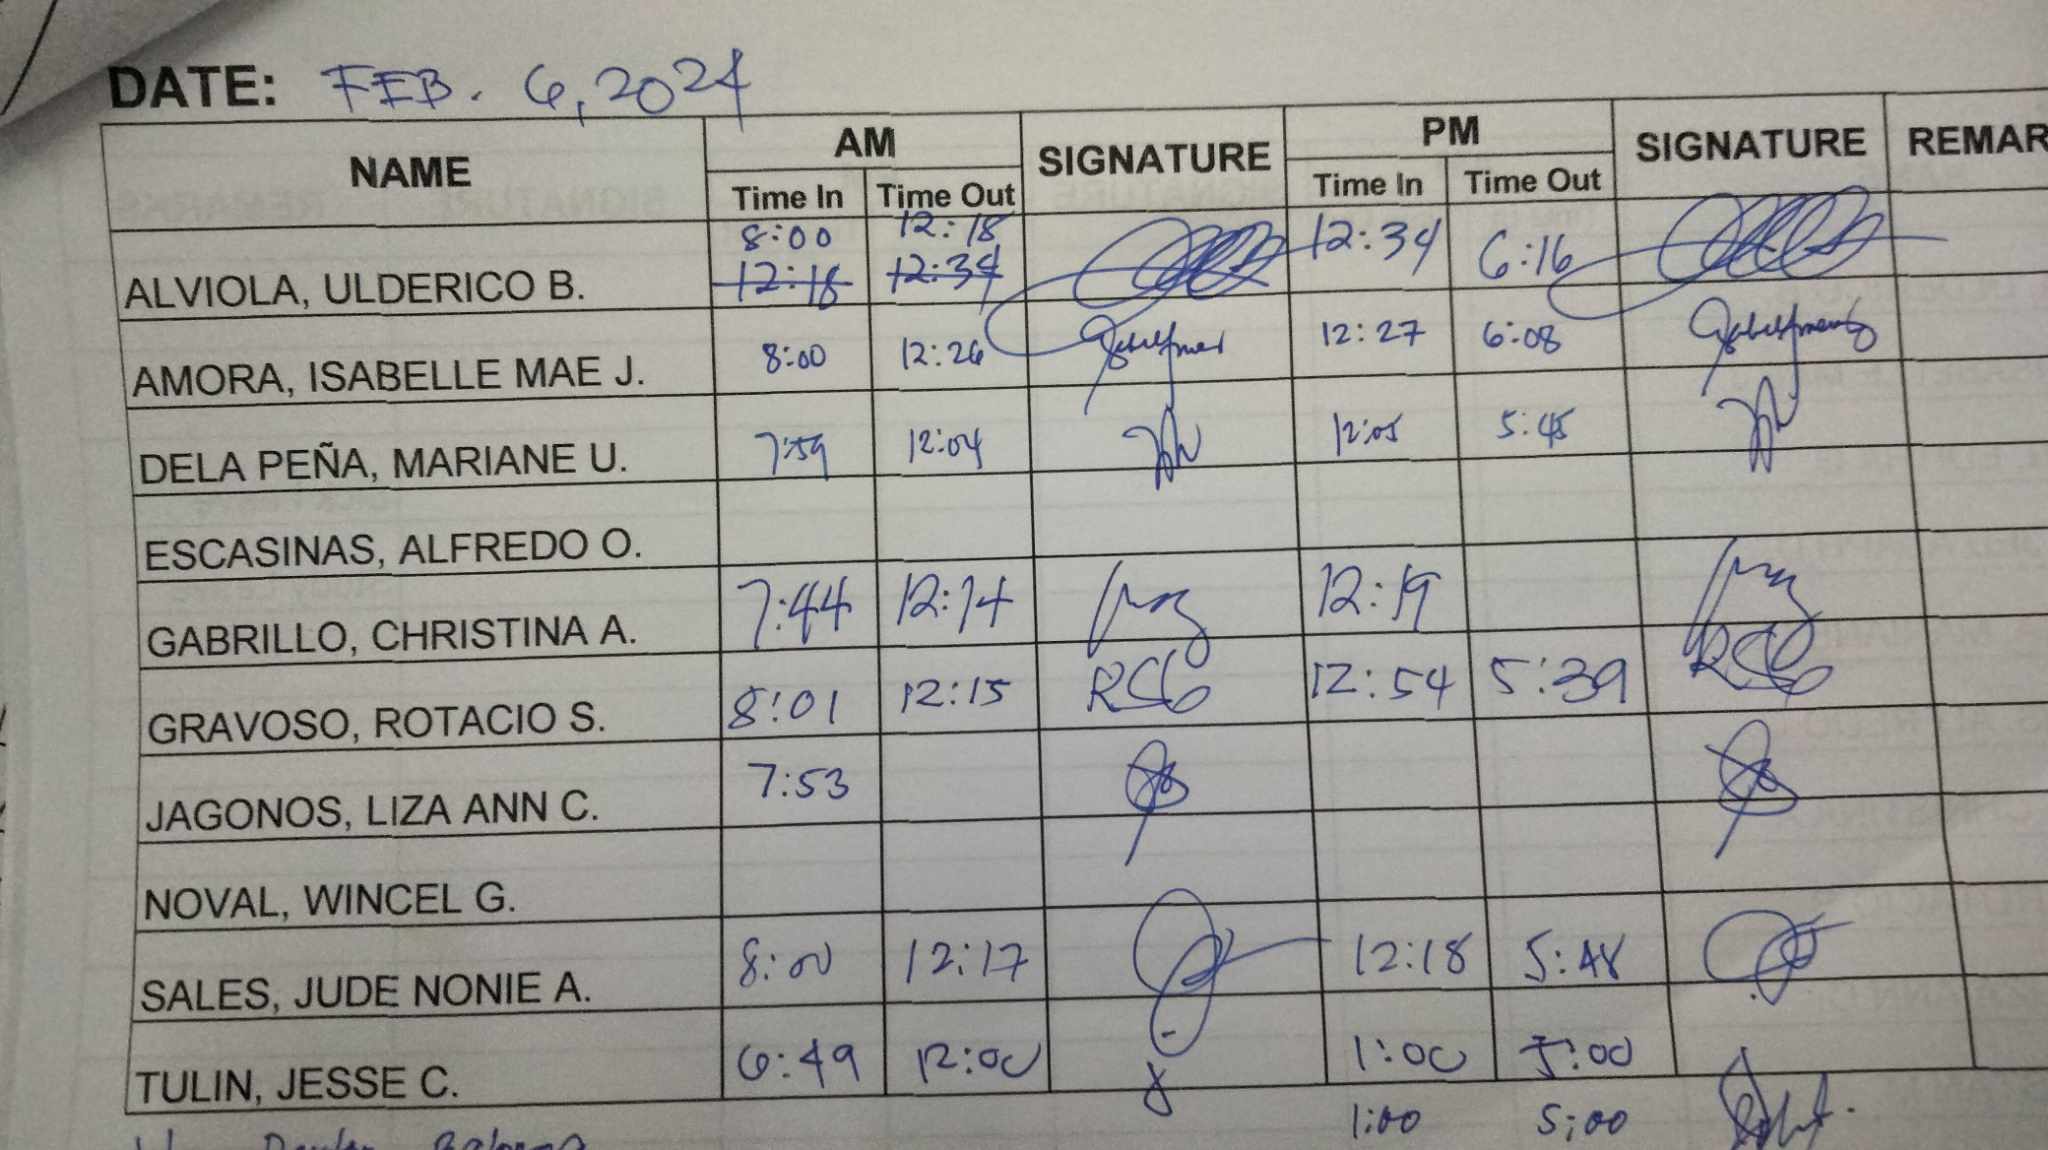 DATE: FEB. 6, 2024
NAME AM SIGNATURE PM SIGNATURE REMAR
Time In Time Out Time In Time Out
8:00 12:18
ALVIOLA, ULDERICO B. 12:18 12:34 12:34 6:16
AMORA, ISABELLE MAE J. 8:00 12:26 12:27 6:08
DELA PEÑA, MARIANE U. 7:59 12:04 12:05 5:45
ESCASINAS, ALFREDO O.
GABRILLO, CHRISTINA A. 7:44 12:14 12:19
GRAVOSO, ROTACIO S. 8:01 12:15 RSG 12:54 5:39 RSG
JAGONOS, LIZA ANN C. 7:53
NOVAL, WINCEL G.
SALES, JUDE NONIE A. 8:00 12:17 12:18 5:48
TULIN, JESSE C. 6:49 12:00 1:00 5:00
1:00 5:00